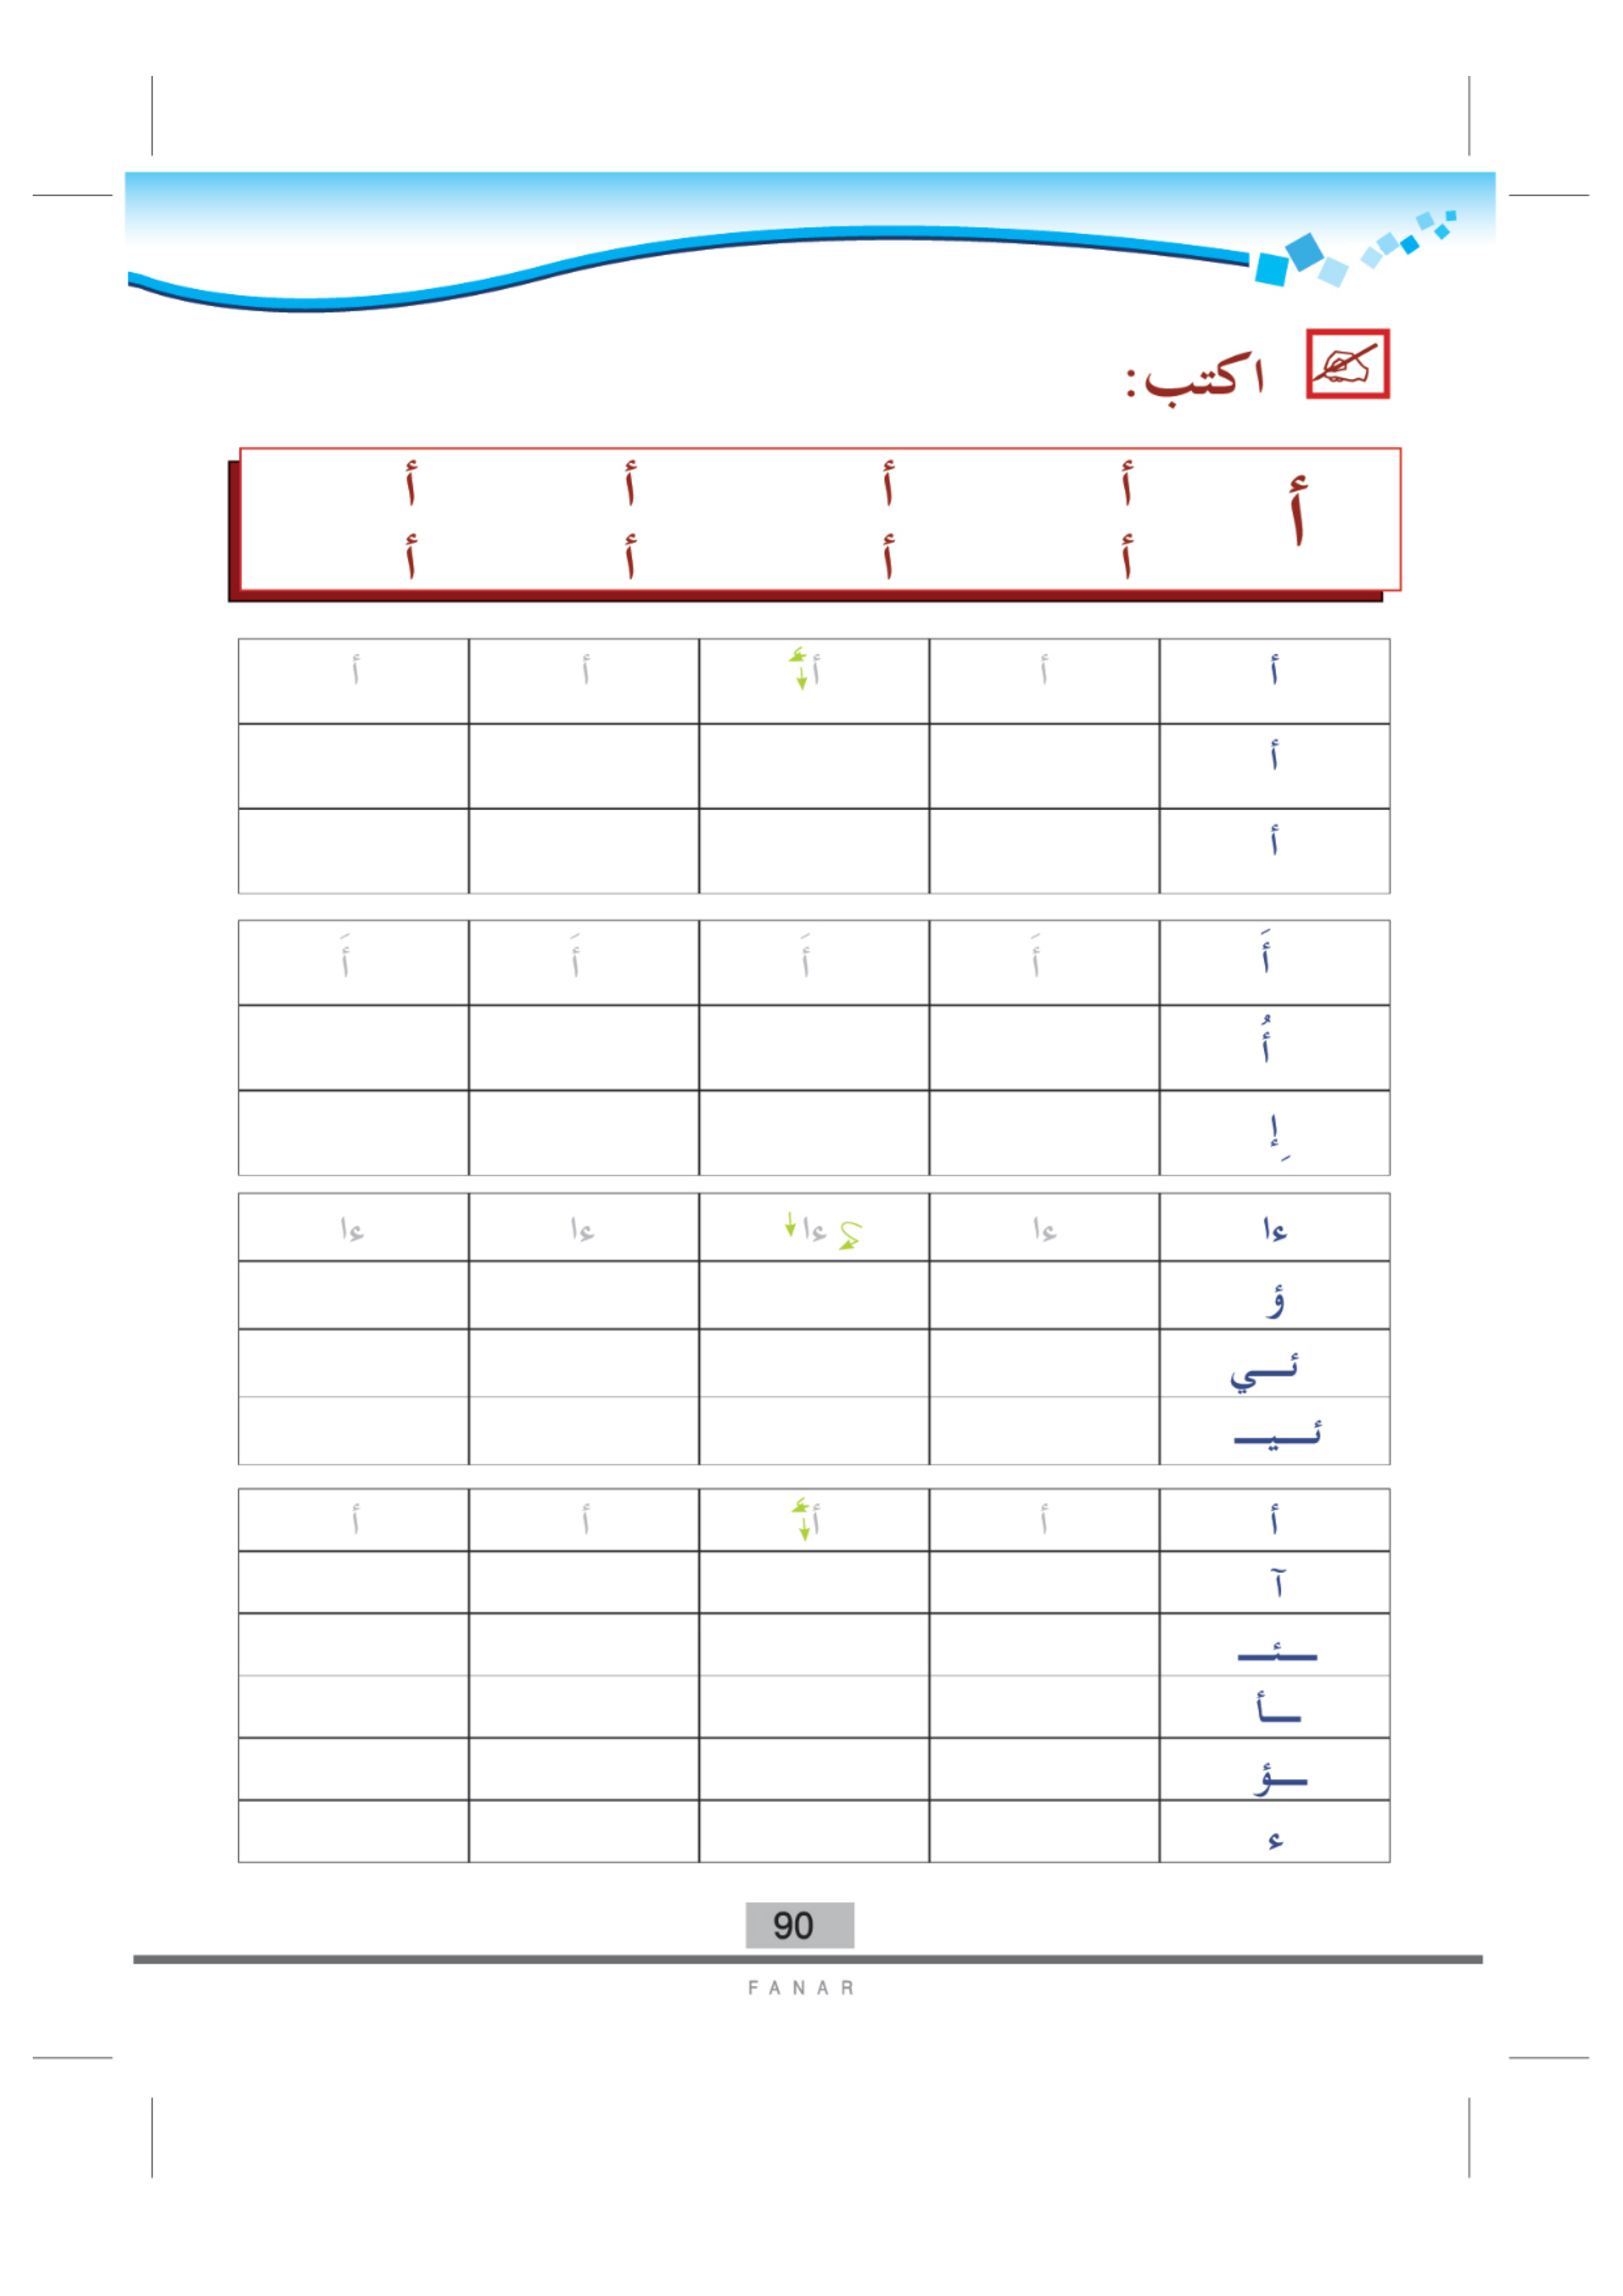 اكتب:
أ أ أ أ أ
أ أ أ أ
أ أ أ أ أ
أ
أ
أَ أَ أَ أَ أَ
أُ
إِ
ءا ءا ءا ءا ءا
ؤ
ئـــي
ئـــيـــ
أ أ أ أ أ
آ
ـــئـــ
ـــأ
ـــؤ
ء
90
FANAR